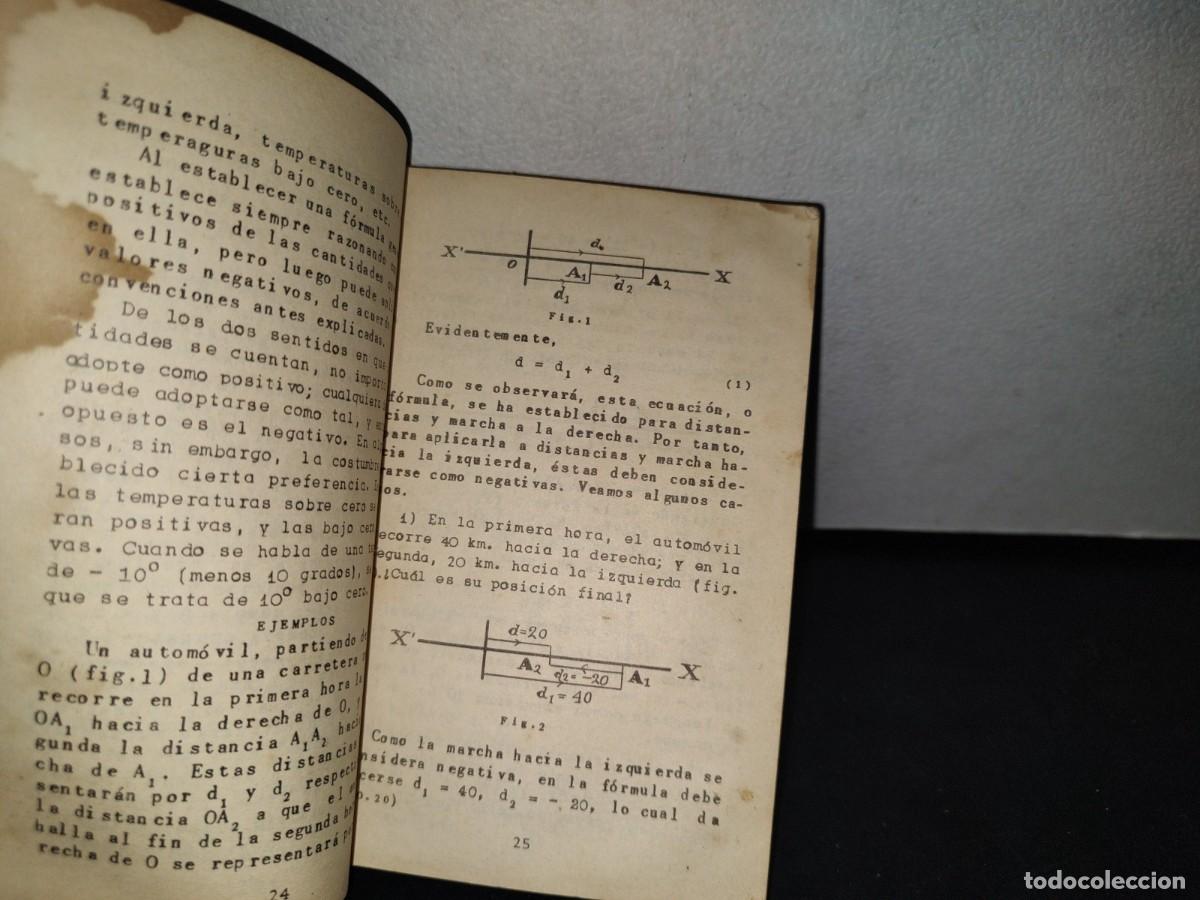 izquierda, temperaturas sobre
temperaguras bajo cero, etc.
Al establecer una fórmula
establece siempre razonando
positivos de las cantidades
en ella, pero luego puede
valores negativos, de acuerdo
convenciones antes explicadas.
De los dos sentidos en que
tidades se cuentan, no
adopte como positivo; cualquiera
puede adoptarse como tal, y
opuesto es el negativo. En
sos, sin embargo, la
blecido cierta preferencia.
las temperaturas sobre cero se
ran positivas, y las bajo
vas. Cuando se habla de una
de - 10º (menos 10 grados),
que se trata de 10º bajo cero.
EJEMPLOS
Un automóvil, partiendo
O (fig.1) de una carretera
recorre en la primera hora
OA1 hacia la derecha de O,
gunda la distancia A1A2
cha de A1. Estas distancias
sentarán por d1 y d2
la distancia OA2 a que el
halla al fin de la segunda
recha de O se representará
24
X' O d. A1 A2 X
d1 d2
Fig.1
Evidentemente,
d = d1 + d2 (1)
Como se observará, esta ecuación, o
fórmula, se ha establecido para distan-
cias y marcha a la derecha. Por tanto,
para aplicarla a distancias y marcha ha-
cia la izquierda, éstas deben conside-
rarse como negativas. Veamos algunos ca-
sos.
1) En la primera hora, el automóvil
recorre 40 km. hacia la derecha; y en la
segunda, 20 km. hacia la izquierda (fig.
¿Cuál es su posición final?
d=20
X' A2 A1 X
d2=-20
d1=40
Fig.2
Como la marcha hacia la izquierda se
considera negativa, en la fórmula debe
hacerse d1 = 40, d2 = - 20, lo cual da
.20)
25
todocoleccion